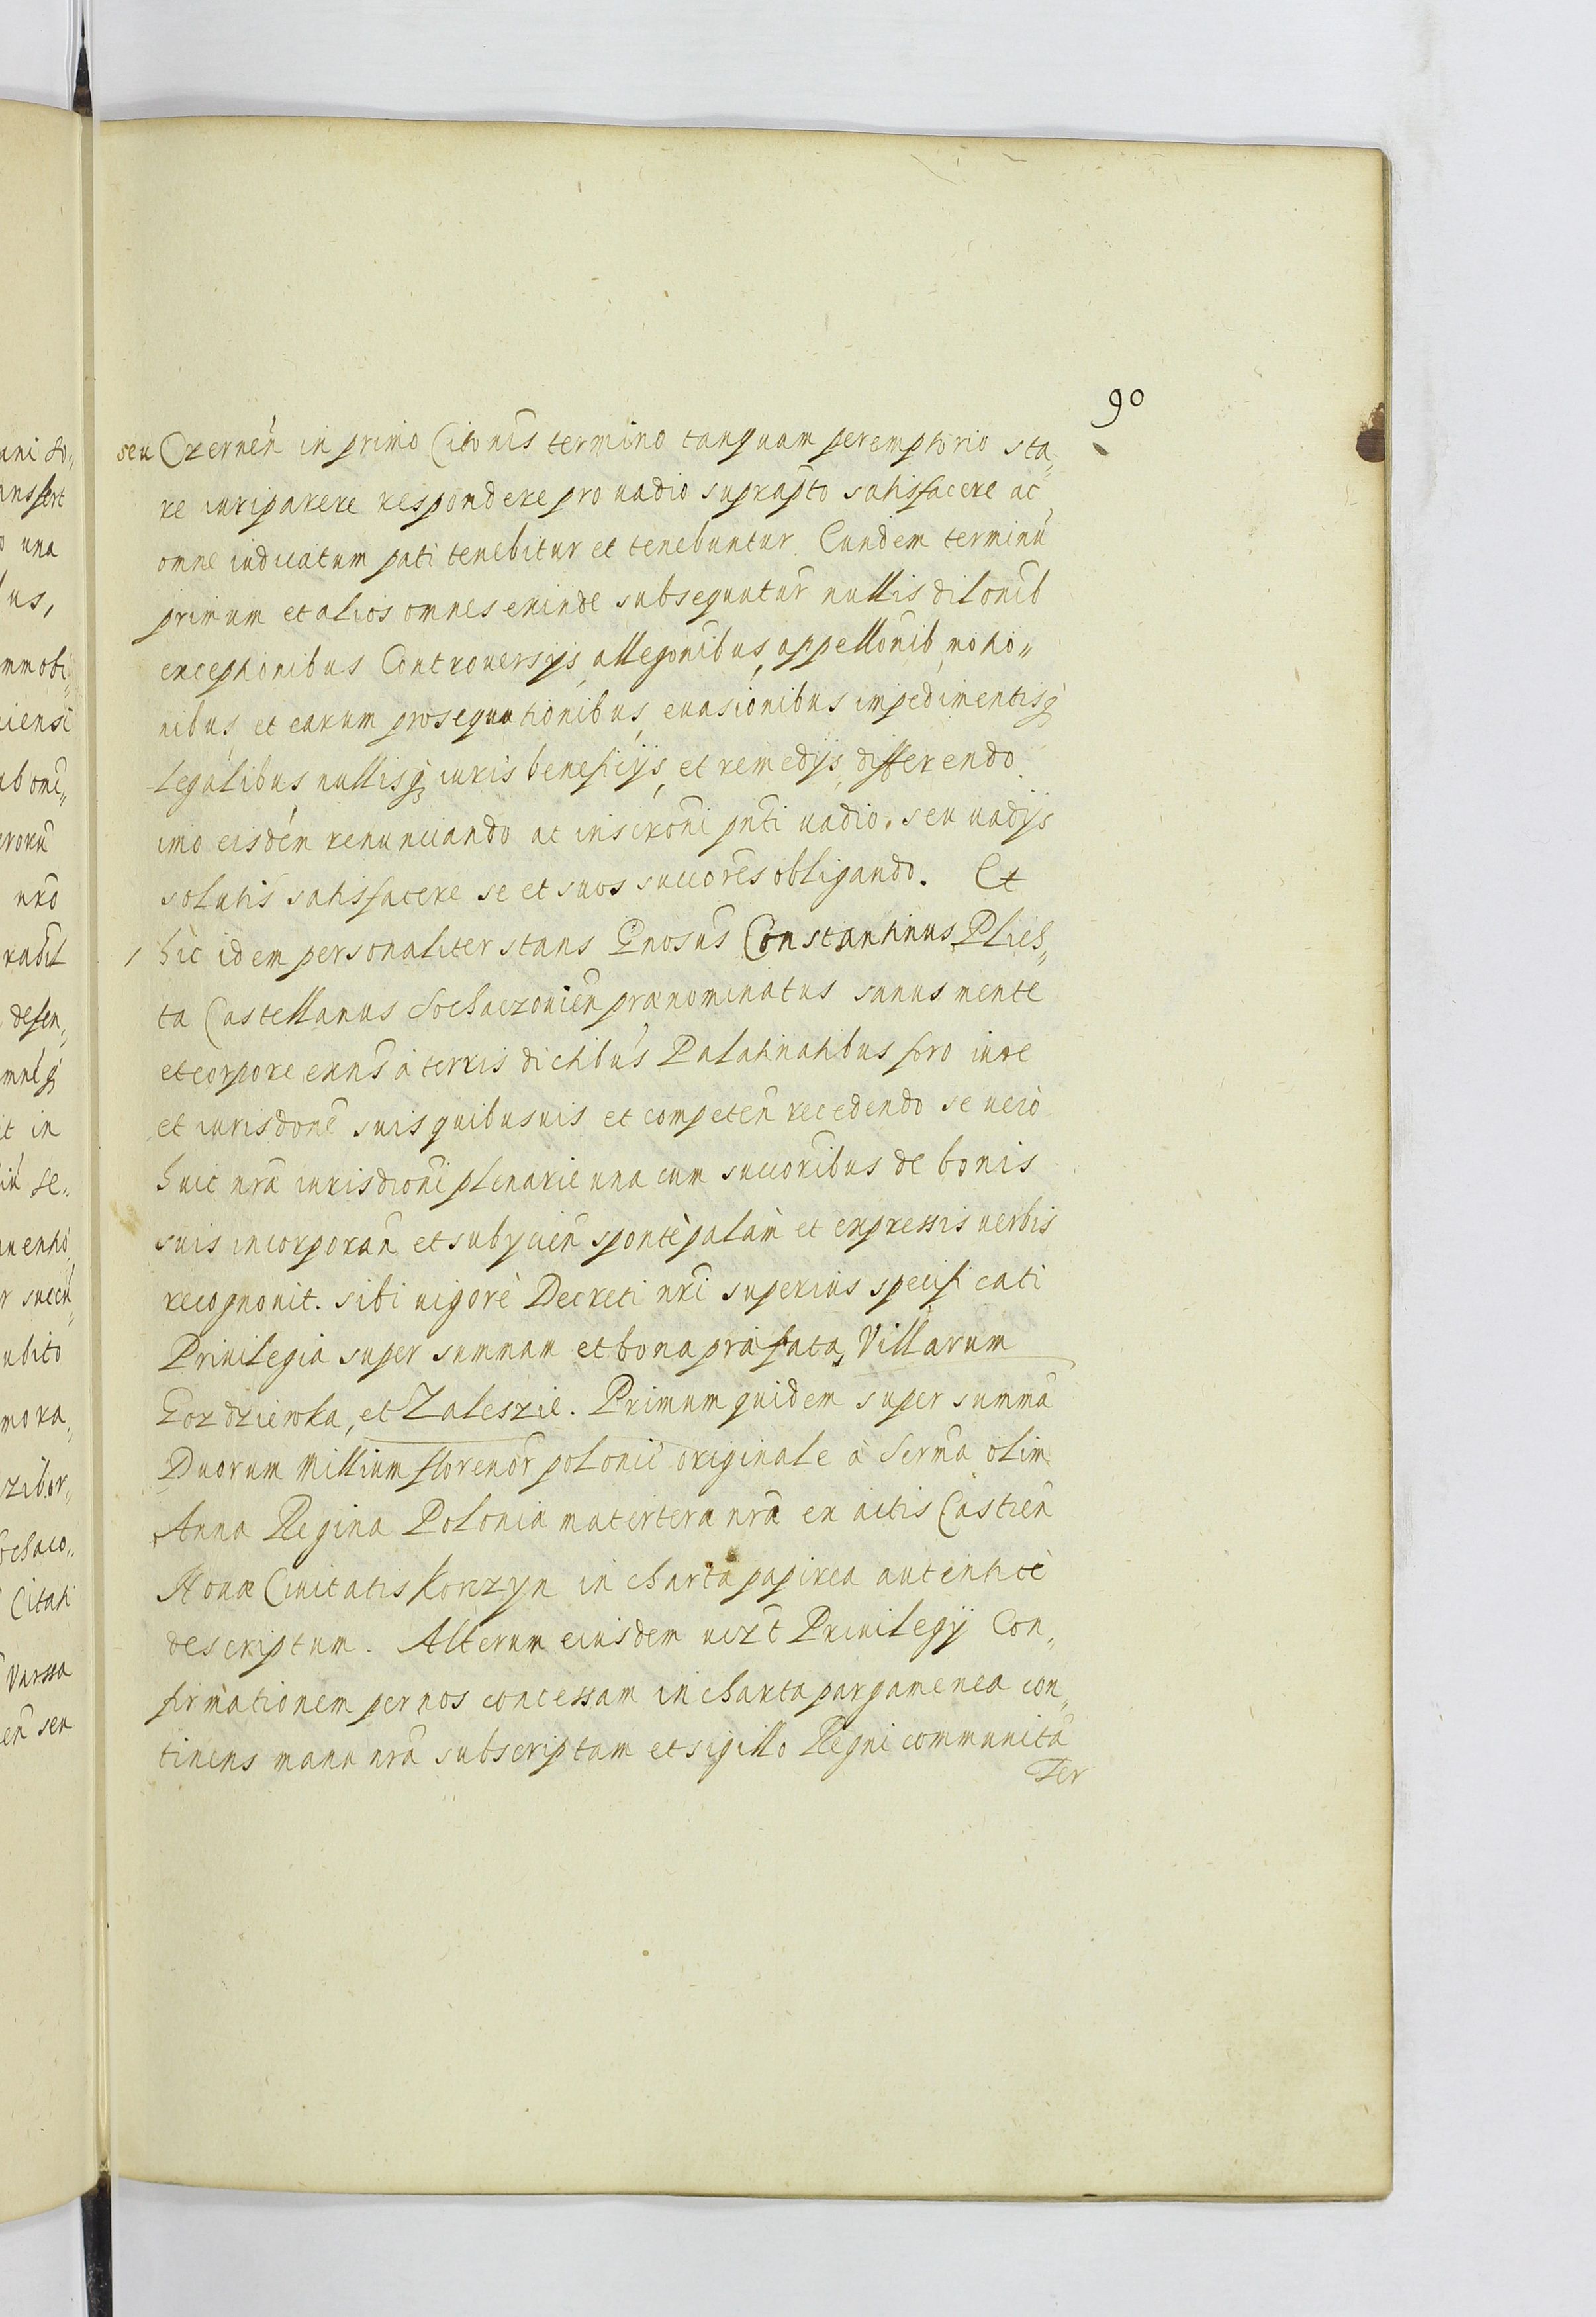 90
seu Czernen̄ in primo Citōnis termino tanquam peremptorio sta„
re iuri parere respondere pro vadio suprap̄to satisfacere ac
omne iudicatum pati tenebitur et tenebuntur. Eundem terminū
primum et alios omnes exinde subsequutur̄ nullis dilōnib̄
exceptionibus Controversijs, allegōnibus, appellōnib, motio„
nibus, et earum prosequutionibus, euasionibus impedimentisq̨
legalibus nullisq̨ iuris beneficijs, et remedijs, differendo
imo eisdem renunciando at inscrōni pn̄ti uadio. seu uadijs
solutis satisfacere se et suos succōres obligando. Et
hic idem personaliter stans Gnosus̄ Constantinus Plich„
ta Castellanus Sochaczouien̄ prænominatus sanus mente
et corpore exn̄s à terris dictibus Palatinatibus foro iure
et iurisdōnē suis quibusuis et competen̄ recedendo se uerò
huic nrā iurisdiōni plenarie una cum succōribus de bonis
suis incorporan̄ et subycien̄ spontè palàm et expressis uerbis
recognouit. sibi uigorè Decreti nrī superius specificati
Priuilegia super summam et bona præfata, Villarum
Gozdziewka, et Zaleszie. Primum quidem super summā
Duorum Millium florenor̄ polonic̄ originale à Serm̄a olim
Anna Regina Polonia matertera nrā ex actis Castren̄
Nouæ Ciuitatis Korczyn in charta papirea autenticè
descriptum. Alterum eiusdem uizt̄ Priuilegij Con„
firmationem per nos concessam in charta pargamenea con„
tinens manu nrā subscriptam et sigillo Regni communitā
Ter